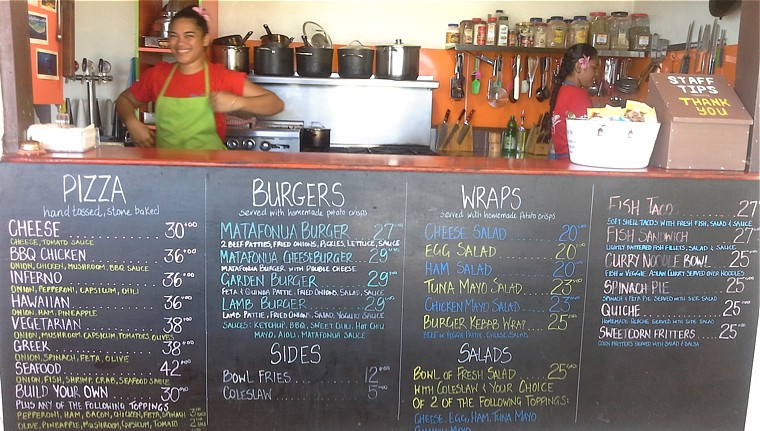 STAFF
TIPS
THANK
YOU
PIZZA
hand tossed, stone baked
CHEESE 30.00
CHEESE, TOMATO SAUCE
BBQ CHICKEN 36.00
ONION, CHICKEN, MUSHROOM, BBQ SAUCE
INFERNO 36.00
ONION, PEPPERONI, CAPSICUM, CHILI
HAWAIIAN 36.00
ONION, HAM, PINEAPPLE
VEGETARIAN 38.00
ONION, MUSHROOM, CAPSICUM, TOMATOES, OLIVES
GREEK 38.00
ONION, SPINACH, FETA, OLIVE
SEAFOOD 42.00
ONION, FISH, SHRIMP, CRAB, SEAFOOD SAUCE
BUILD YOUR OWN 30.00
PLUS ANY OF THE FOLLOWING TOPPINGS
PEPPERONI, HAM, BACON, CHICKEN, FETA, SPINACH
OLIVE, PINEAPPLE, MUSHROOM, CAPSICUM, TOMATO
BURGERS
served with homemade potato crisps
MATAFONUA BURGER 27
2 BEEF PATTIES, FRIED ONIONS, PICKLES, LETTUCE, SAUCE
MATAFONUA CHEESEBURGER 29
MATAFONUA BURGER WITH DOUBLE CHEESE
GARDEN BURGER 29
FETA & QUINOA PATTIE, FRIED ONIONS, SALAD, SAUCE
LAMB BURGER 29
LAMB PATTIE, FRIED ONIONS, SALAD, YOGURT SAUCE
SAUCES: KETCHUP, BBQ, SWEET CHILI, HOT CHILI
MAYO, AIOLI, MATAFONUA SAUCE
SIDES
BOWL FRIES 12
COLESLAW 5
WRAPS
served with homemade potato crisps
CHEESE SALAD 20
EGG SALAD 20
HAM SALAD 20
TUNA MAYO SALAD 23
CHICKEN MAYO SALAD 23
BURGER KEBAB WRAP 25
BEEF & VEGGIE PATTIE, CHEESE, SALAD
SALADS
BOWL OF FRESH SALAD 25
WITH COLESLAW & YOUR CHOICE
OF 2 OF THE FOLLOWING TOPPINGS:
CHEESE, EGG, HAM, TUNA MAYO
CHICKEN MAYO
FISH TACO 27
SOFT SHELL TACOS WITH FRESH FISH, SALAD & SAUCE
FISH SANDWICH 27
LIGHTLY BATTERED FISH FILLETS, SALAD & SAUCE
CURRY NOODLE BOWL 25
FISH OR VEGGIE ASIAN CURRY SERVED OVER NOODLES
SPINACH PIE 25
SPINACH & FETA PIE SERVED WITH SIDE SALAD
QUICHE 25
HOMEMADE QUICHE SERVED WITH SIDE SALAD
SWEETCORN FRITTERS 25
CORN FRITTERS SERVED WITH SALAD & SALSA